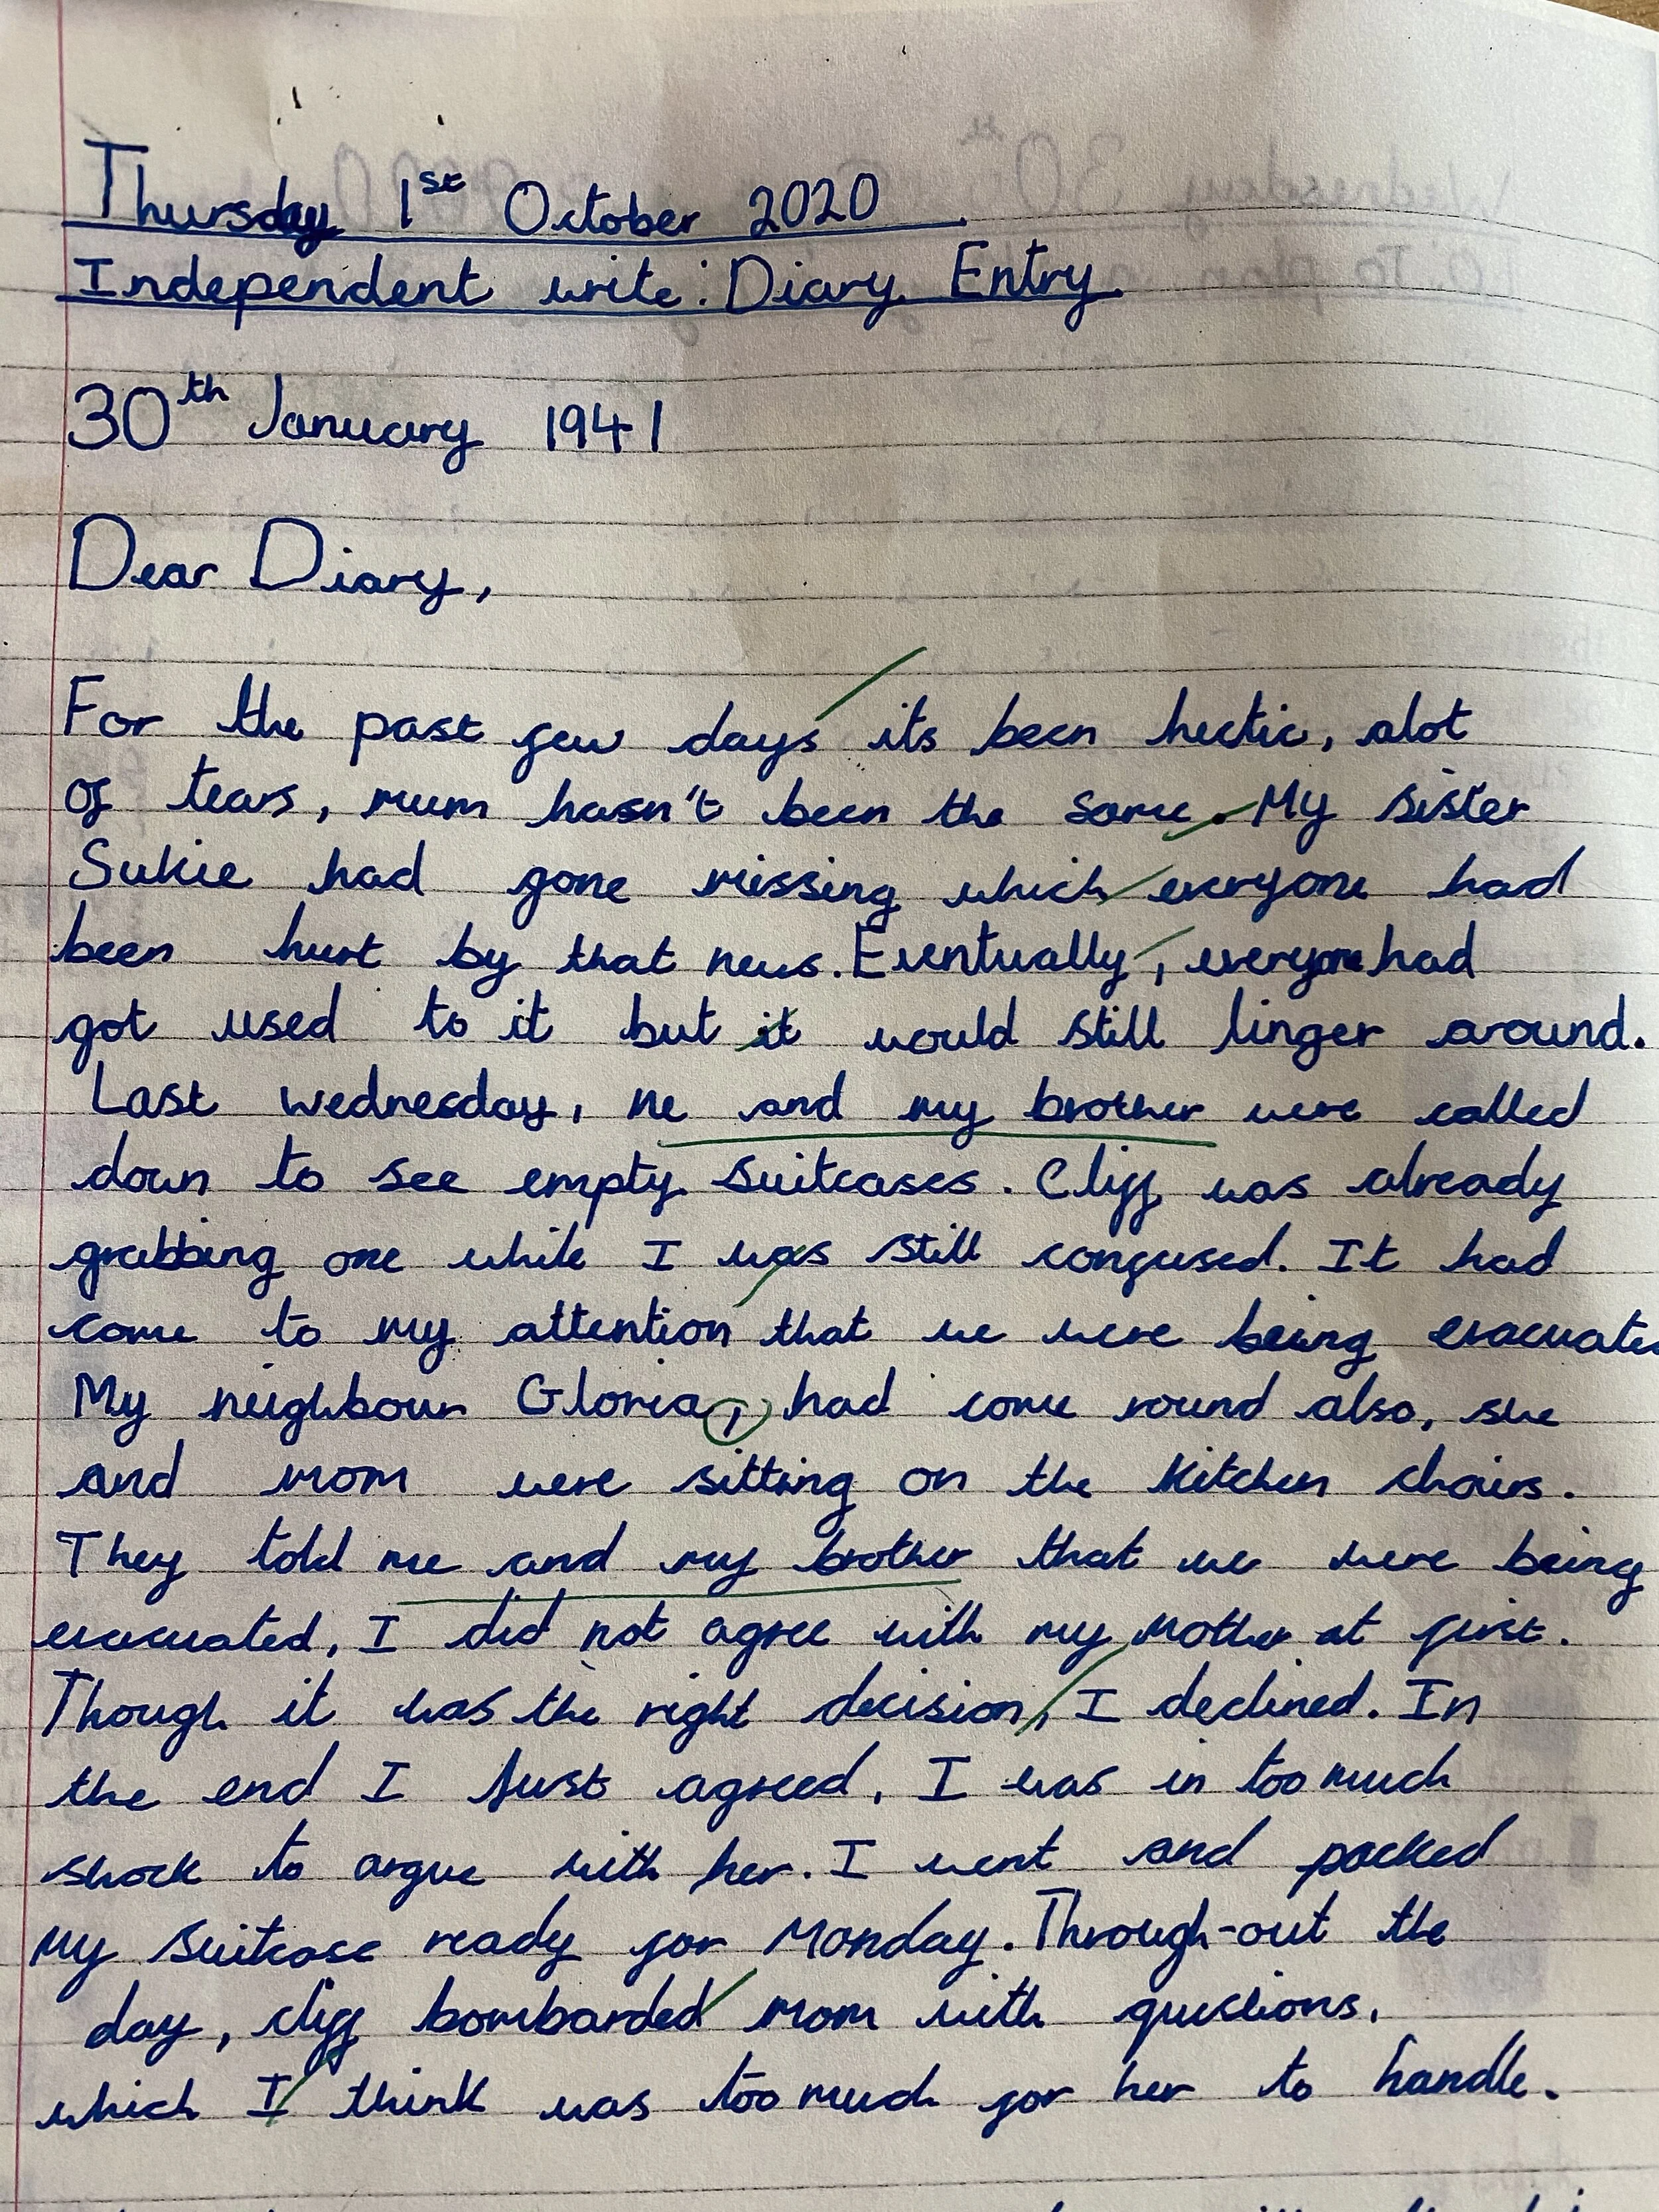 Thursday 1st October 2020
Independent write: Diary Entry
30th January 1941
Dear Diary,
For the past few days its been hectic, alot
of tears, mum hasn't been the same. My sister
Sukie had gone missing which everyone had
been hurt by that news. Eventually, everyone had
got used to it but it would still linger around.
Last wednesday, me and my brother were called
down to see empty suitcases. Cliff was already
grabbing one while I was still confused. It had
come to my attention that we were being evacuate
My neighbour Gloria, had come round also, she
and mom were sitting on the kitchen chairs.
They told me and my brother that we were being
evacuated, I did not agree with my mother at first.
Though it was the right decision, I declined. In
the end I just agreed, I was in too much
shock to argue with her. I went and packed
my suitcase ready for Monday. Through-out the
day, cliff bombarded mom with questions,
which I think was too much for her to handle.